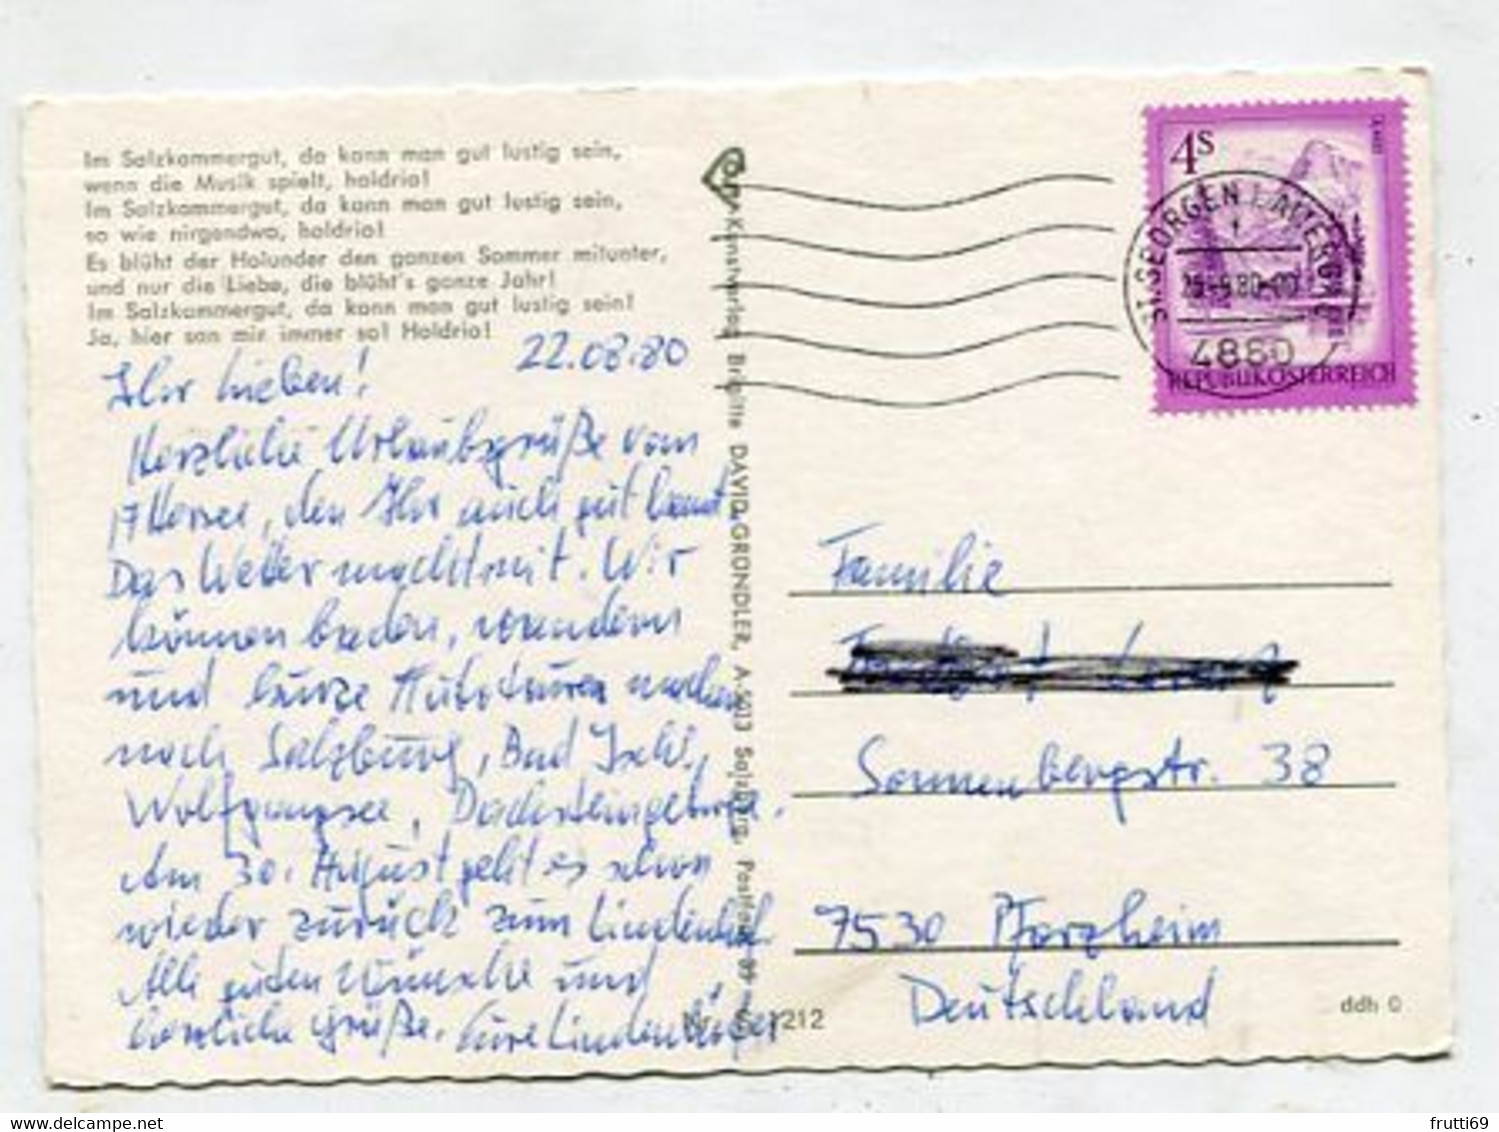 Im Salzkammergut, da kann man gut lustig sein,
wenn die Musik spielt, holdrio!
Im Salzkammergut, da kann man gut lustig sein,
so wie nirgendwo, holdrio!
Es blüht der Holunder den ganzen Sommer mitunter,
und nur die Liebe, die blüht's ganze Jahr!
Im Salzkammergut, da kann man gut lustig sein!
Ja, hier san mir immer so! Holdrio!
22.08.80
Ihr Lieben!
Herzliche Urlaubsgrüße vom
Attersee, den Ihr auch gut kennt.
Das Wetter macht mit. Wir
können baden, wandern
und kurze Autotouren machen
nach Salzburg, Bad Ischl,
Wolfgangsee, Dachsteingebirge.
Am 30. August geht es schon
wieder zurück zum Lindenhof.
Alle guten Wünsche und
herzliche Grüße. Eure
Kunstverlag Brigitte DAVID-GRÜNDLER, A-5013 Salzburg, Postfach 89
1212
4S
ST. GEORGEN I. ATTERGAU
4880
REPUBLIK ÖSTERREICH
Familie
Sonnenbergstr. 38
7530 Pforzheim
Deutschland
ddh O
frutti69